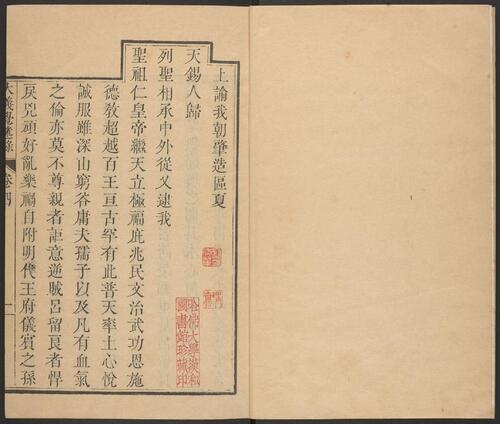 上諭我朝肇造區夏
天錫人歸
列聖相承中外從乂逮我
聖祖仁皇帝繼天立極福庇兆民文治武功恩施
德教超越百王亘古罕有此普天率土心悅
誠服雖深山窮谷庸夫孺子以及凡有血氣
之倫亦莫不尊親者詎意逆賊呂留良者悍
戾兇頑好亂樂禍自附明代王府儀賓之孫
大義覺迷錄
卷四
一
哈佛大學漢和
圖書館珍藏印